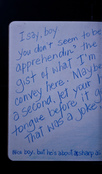 I say, boy
you don't seem to be
apprehendin' the
gist of what I'm
convey here. Maybe
a second, let your
tongue before it g
That was a joke
Nice boy, but he's about as sharp as